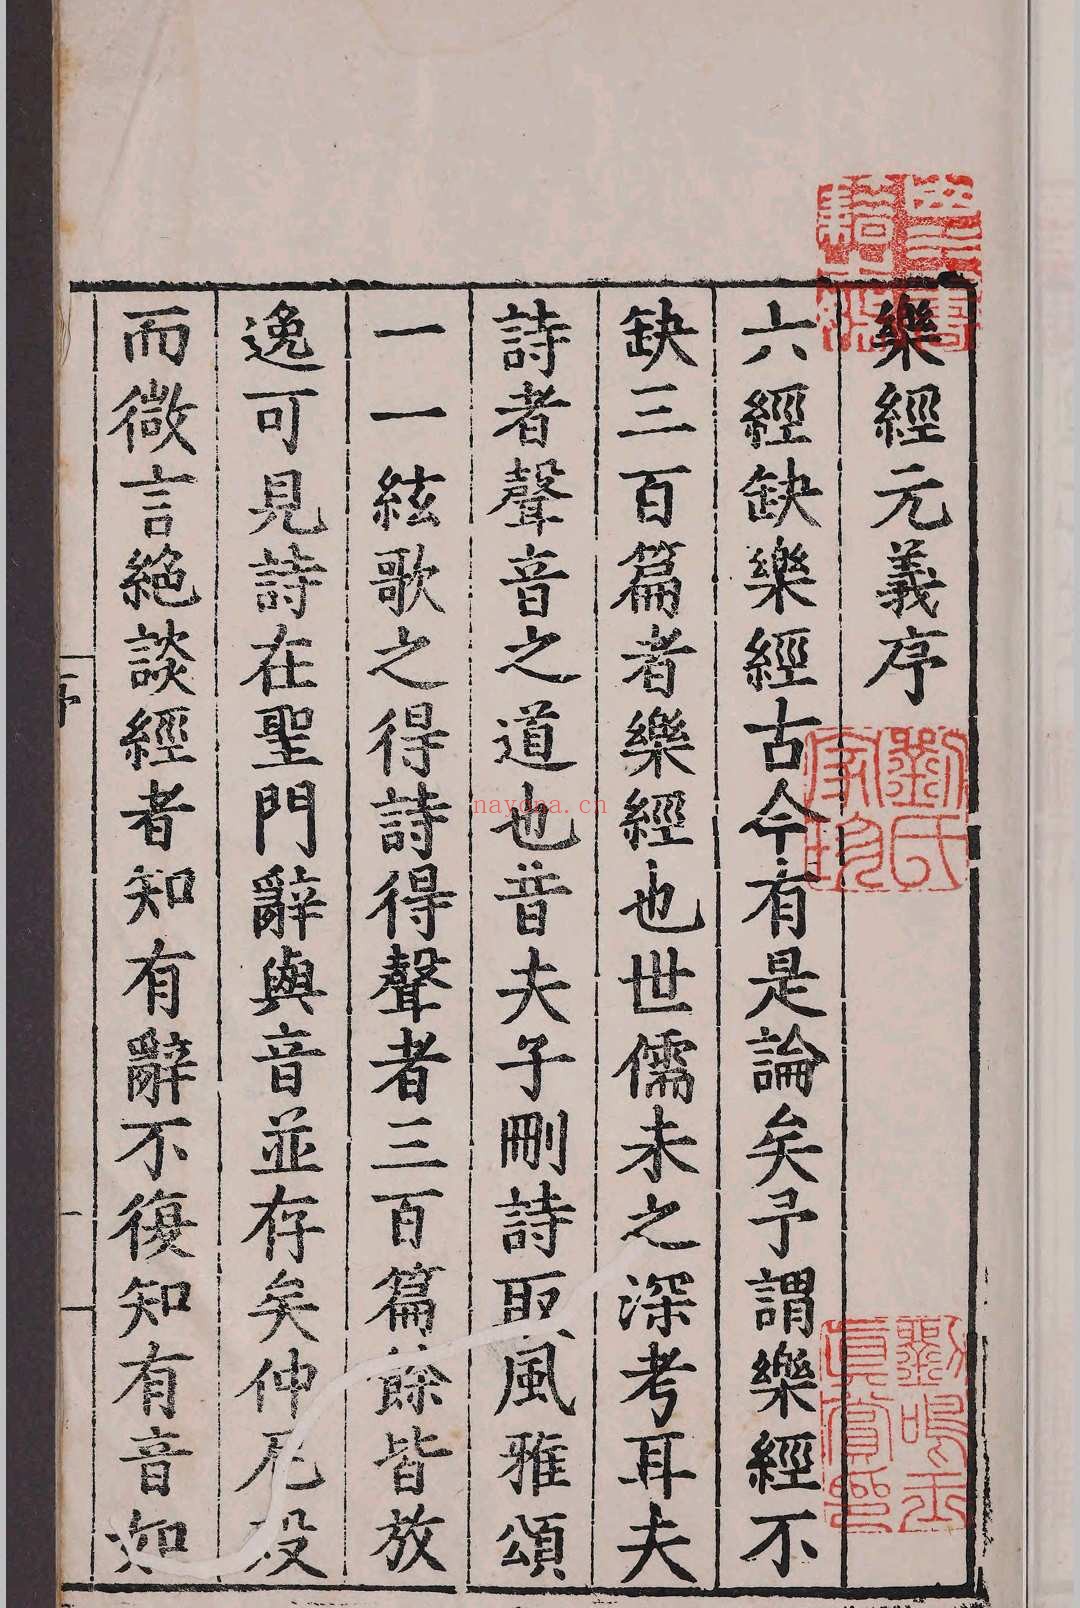 樂經元義序
六經缺樂經古今有是論矣予謂樂經不
缺三百篇者樂經也世儒未之深考耳夫
詩者聲音之道也昔夫子刪詩取風雅頌
一一絃歌之得詩得聲者三百篇餘皆放
逸可見詩在聖門辭與音並存矣仲尼沒
而微言絕談經者知有辭不復知有音如
序
劉氏
家珍
nayona.cn